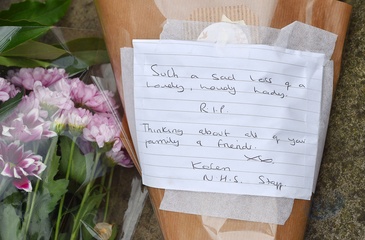 Such a sad loss of a
Lovely, lovely lady.
R.I.P
Thinking about all of your
family & friends.
xx
Karen
N.H.S. Staff